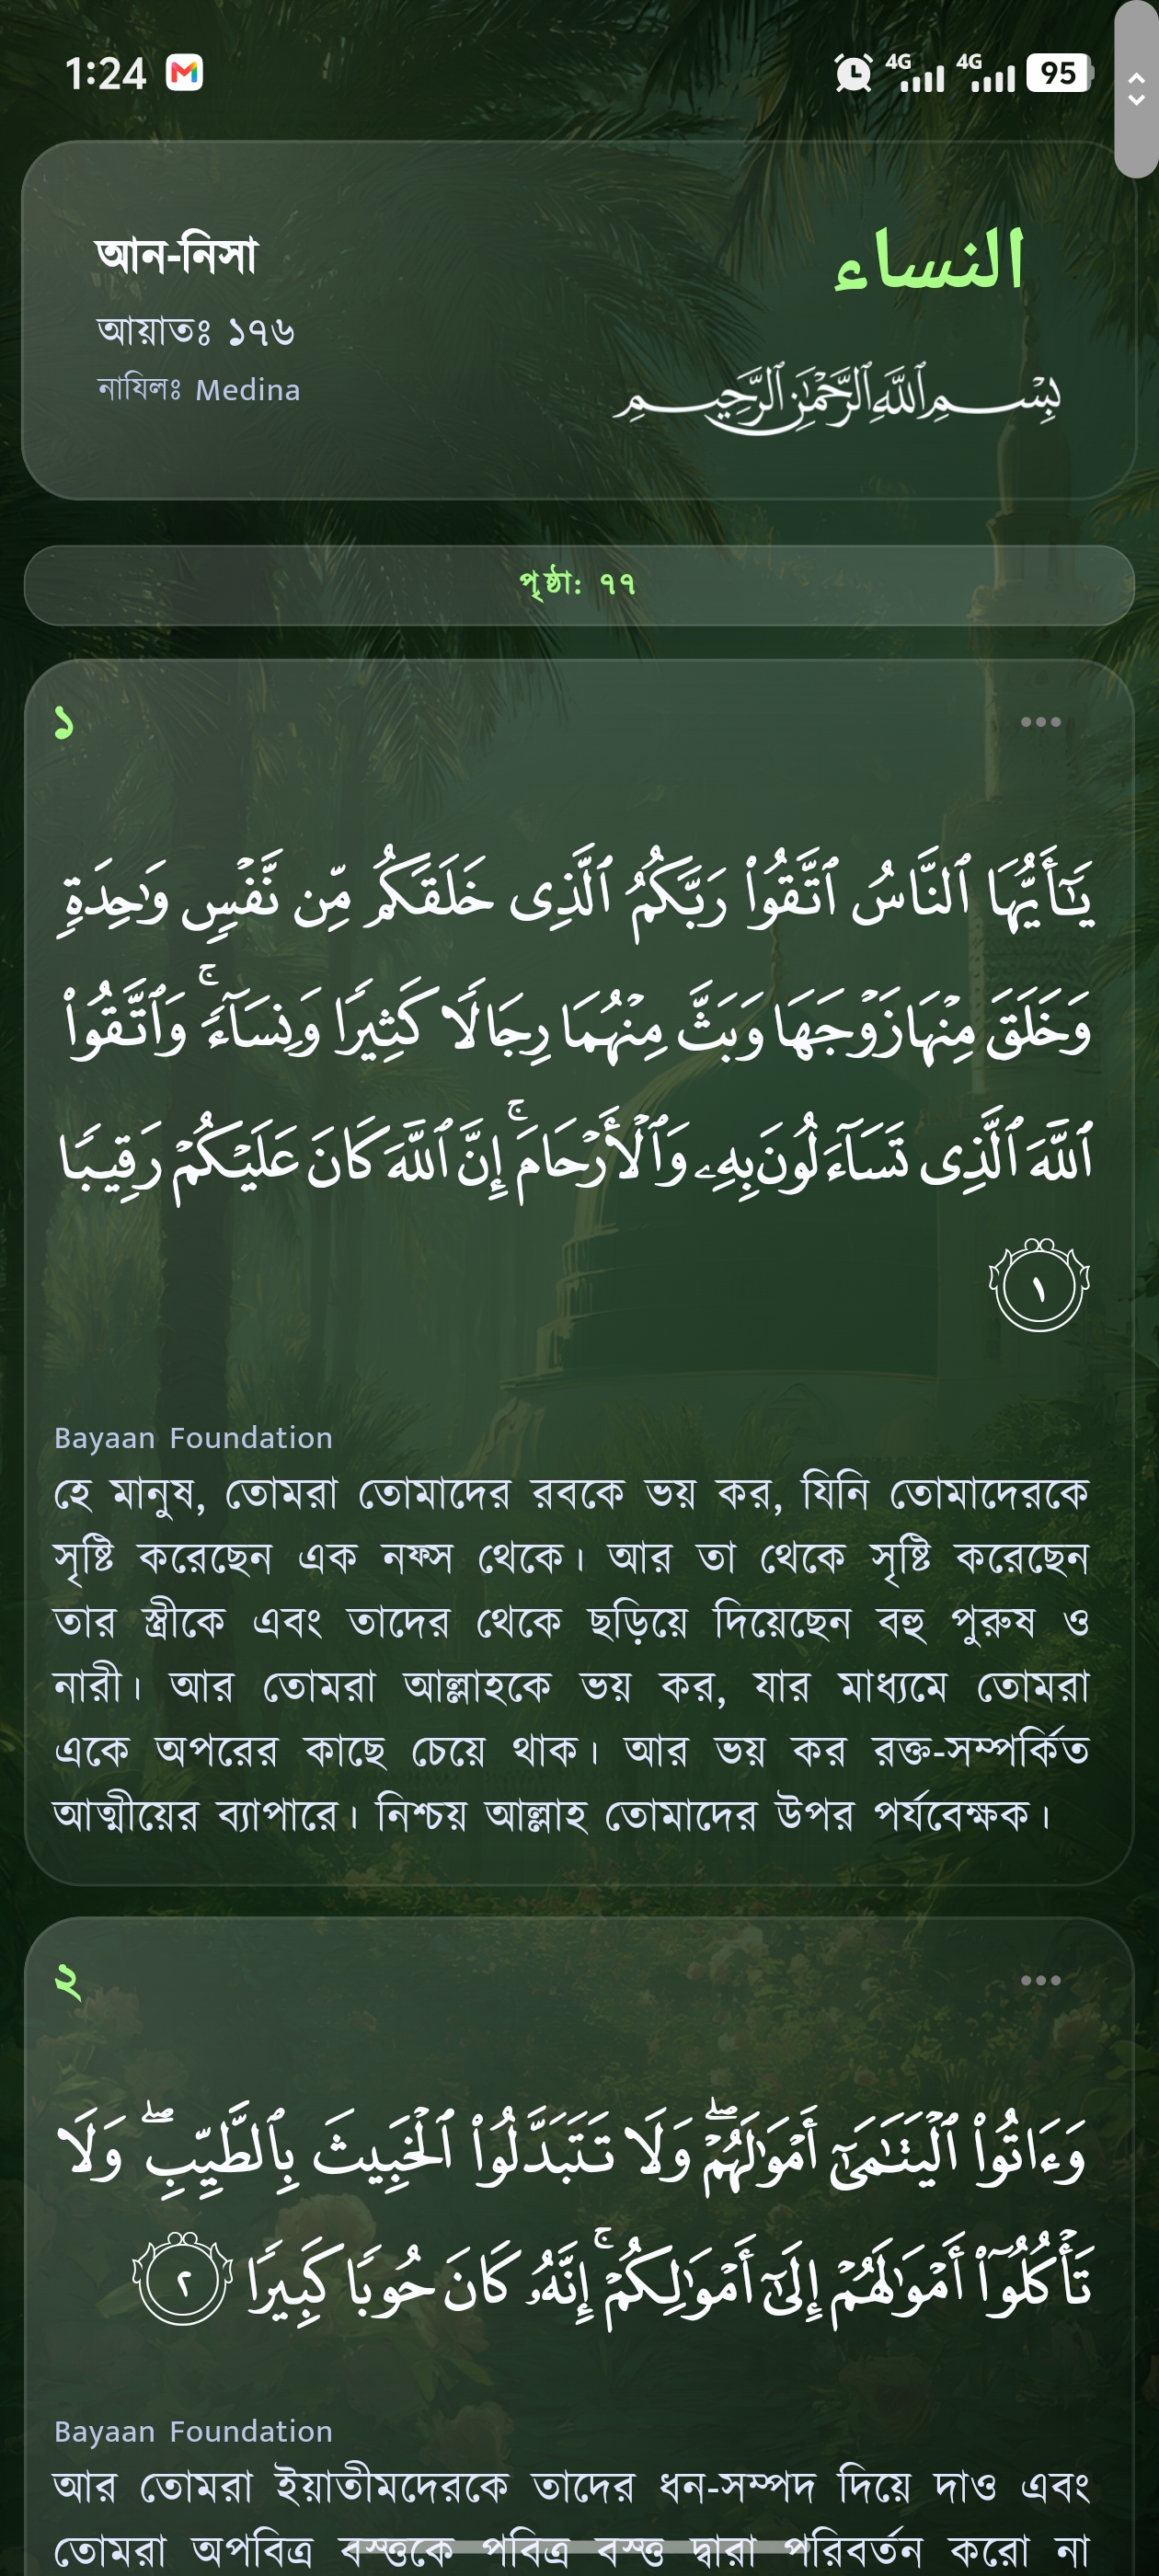 1:24
4G 4G 95
আন-নিসা
النساء
আয়াতঃ ১৭৬
নাযিলঃ Medina
بِسْمِ ٱللَّهِ ٱلرَّحْمَٰنِ ٱلرَّحِيمِ
পৃষ্ঠা: ৭৭
১
يَٰٓأَيُّهَا ٱلنَّاسُ ٱتَّقُوا۟ رَبَّكُمُ ٱلَّذِى خَلَقَكُم مِّن نَّفْسٍ وَٰحِدَةٍ
وَخَلَقَ مِنْهَا زَوْجَهَا وَبَثَّ مِنْهُمَا رِجَالًا كَثِيرًا وَنِسَآءً ۚ وَٱتَّقُوا۟
ٱللَّهَ ٱلَّذِى تَسَآءَلُونَ بِهِۦ وَٱلْأَرْحَامَ ۚ إِنَّ ٱللَّهَ كَانَ عَلَيْكُمْ رَقِيبًا
١
Bayaan Foundation
হে মানুষ, তোমরা তোমাদের রবকে ভয় কর, যিনি তোমাদেরকে
সৃষ্টি করেছেন এক নফ্স থেকে। আর তা থেকে সৃষ্টি করেছেন
তার স্ত্রীকে এবং তাদের থেকে ছড়িয়ে দিয়েছেন বহু পুরুষ ও
নারী। আর তোমরা আল্লাহকে ভয় কর, যার মাধ্যমে তোমরা
একে অপরের কাছে চেয়ে থাক। আর ভয় কর রক্ত-সম্পর্কিত
আত্মীয়ের ব্যাপারে। নিশ্চয় আল্লাহ তোমাদের উপর পর্যবেক্ষক।
২
وَءَاتُوا۟ ٱلْيَتَٰمَىٰٓ أَمْوَٰلَهُمْ ۖ وَلَا تَتَبَدَّلُوا۟ ٱلْخَبِيثَ بِٱلطَّيِّبِ ۖ وَلَا
تَأْكُلُوٓا۟ أَمْوَٰلَهُمْ إِلَىٰٓ أَمْوَٰلِكُمْ ۚ إِنَّهُۥ كَانَ حُوبًا كَبِيرًا ٢
Bayaan Foundation
আর তোমরা ইয়াতীমদেরকে তাদের ধন-সম্পদ দিয়ে দাও এবং
তোমরা অপবিত্র বস্তুকে পবিত্র বস্তু দ্বারা পরিবর্তন করো না